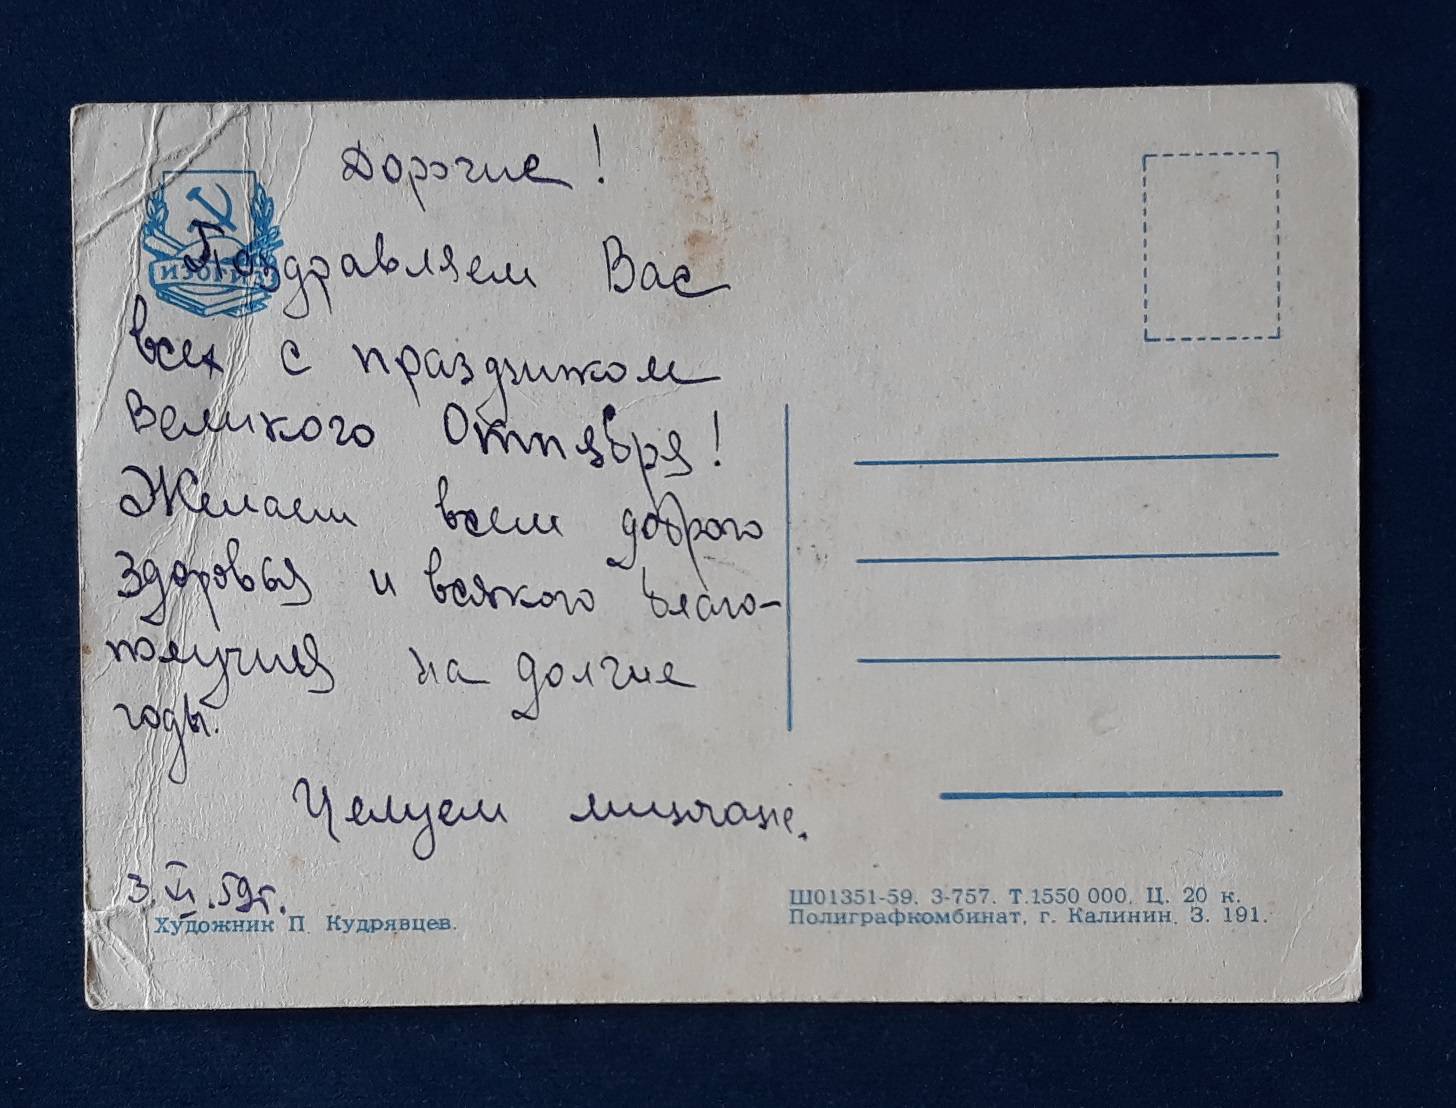 Дорогие!
ИЗОГИЗ
Поздравляем Вас
всех с праздником
Великого Октября!
Желаем всем доброго
здоровья и всякого благо-
получия на долгие
годы.
Целуем
3.XI.59г.
Художник П. Кудрявцев.
Ш01351-59. З-757. Т.1550 000. Ц. 20 к.
Полиграфкомбинат, г. Калинин. З. 191.